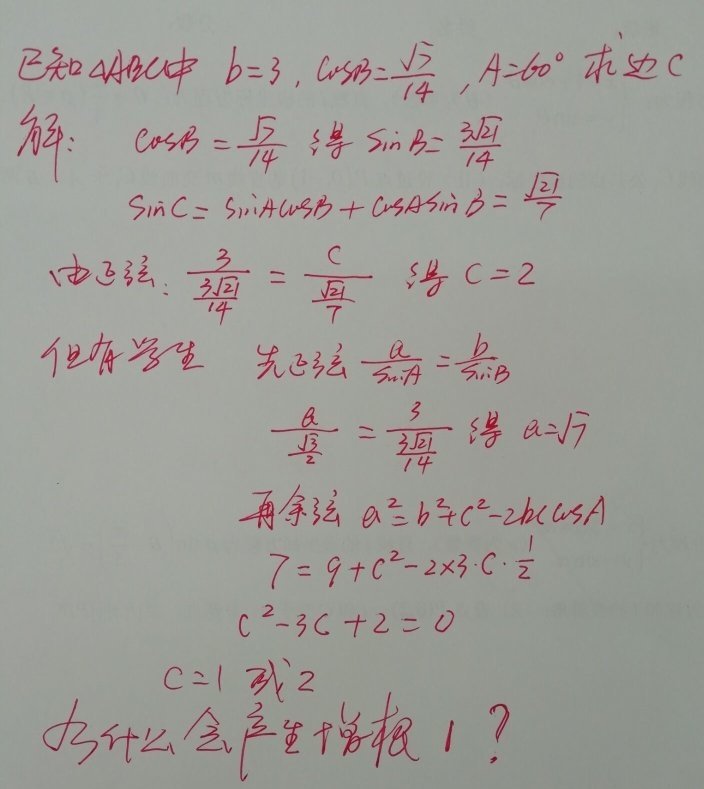 已知△ABC中 b=3, cosB=√7/14, A=60° 求边C
解: cosB=√7/14 得 sinB=3√21/14
sinC=sinAcosB+cosAsinB=√21/7
由正弦: 3/(3√21/14) = C/(√21/7) 得 C=2
但有学生 先正弦 a/sinA = b/sinB
a/(√3/2) = 3/(3√21/14) 得 a=√7
再余弦 a²=b²+c²-2bccosA
7=9+c²-2×3·c·1/2
c²-3c+2=0
c=1 或 2
为什么会产生增根 1?